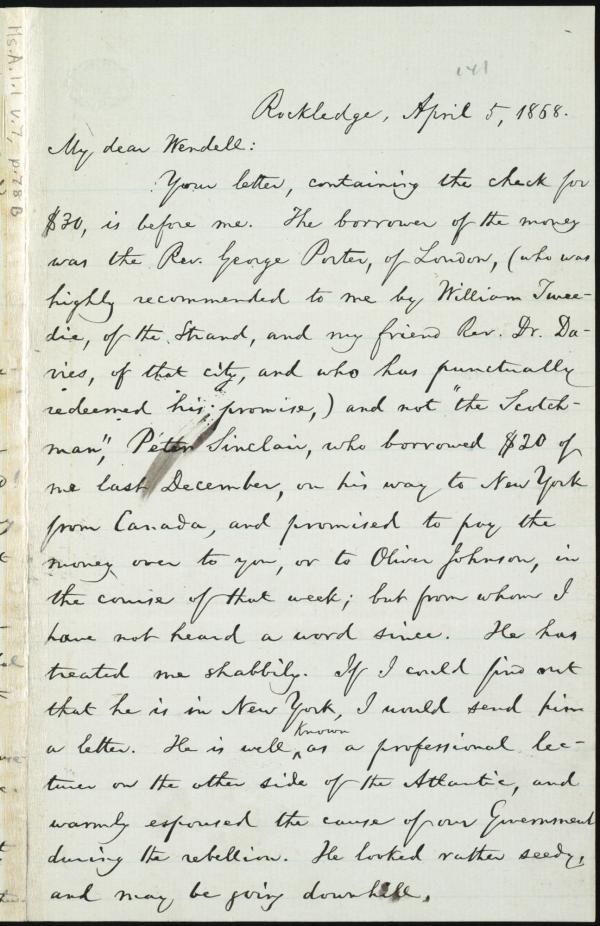 Ms.A.1.1 v.7, p.78B
141
Rockledge, April 5, 1868.
My dear Wendell:
Your letter, containing the check for
$30, is before me. The borrower of the money
was the Rev. George Porter, of London, (who was
highly recommended to me by William Twee-
die, of the Strand, and my friend Rev. Dr. Da-
vies, of that city, and who has punctually
redeemed his promise,) and not "the Scotch-
man", Peter Sinclair, who borrowed $20 of
me last December, on his way to New York
from Canada, and promised to pay the
money over to you, or to Oliver Johnson, in
the course of that week; but from whom I
have not heard a word since. He has
treated me shabbily. If I could find out
that he is in New York, I would send him
a letter. He is well known as a professional lec-
turer on the other side of the Atlantic, and
warmly espoused the cause of our Government
during the rebellion. He looked rather seedy,
and may be going downhill.